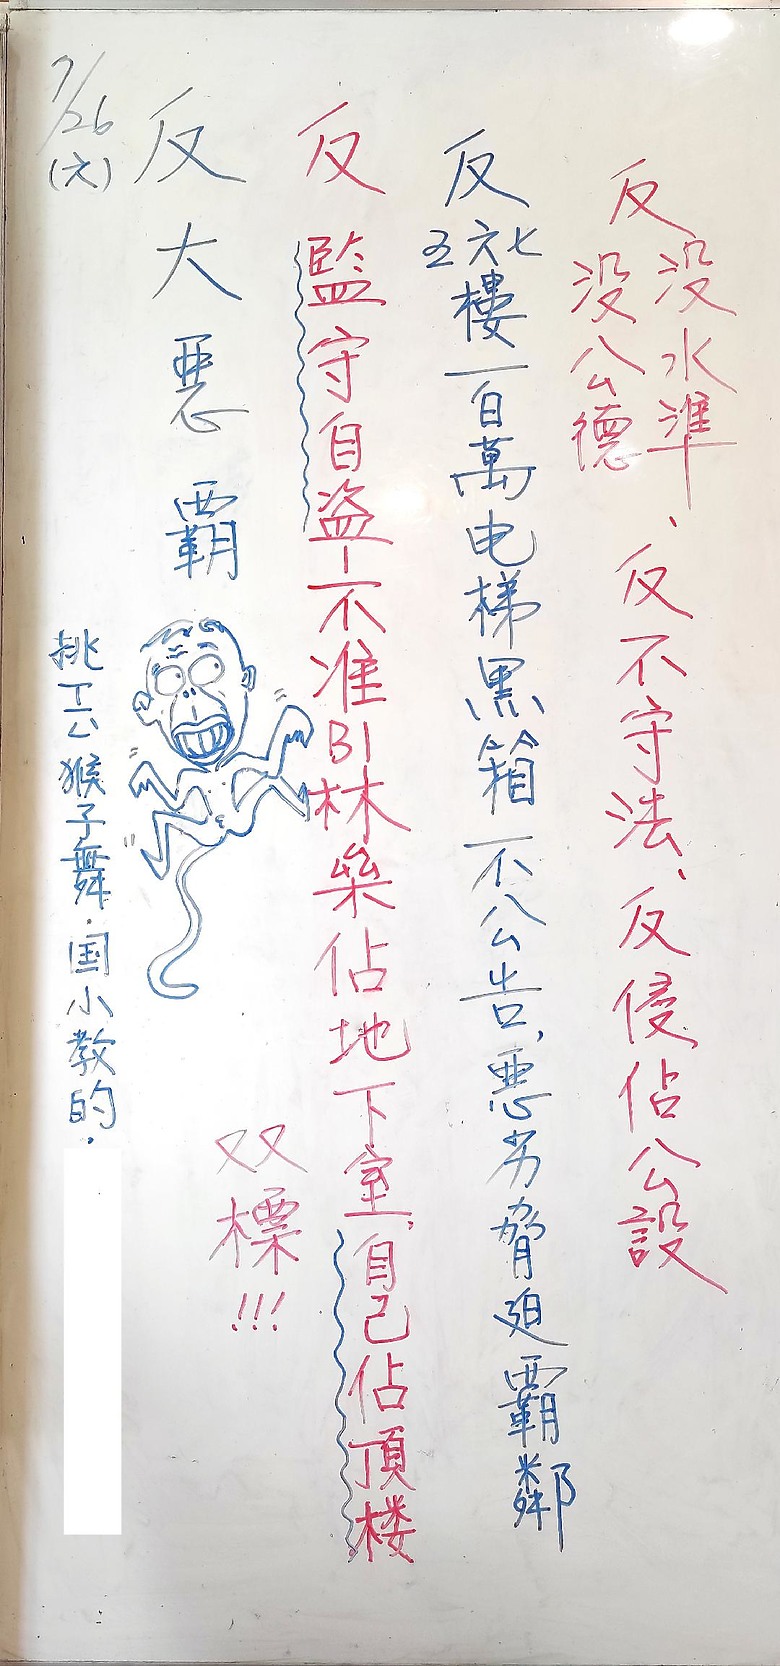 反没水準、反不守法、反侵佔公設
没公德
反五六七樓一百萬电梯黑箱一不公告,惡劣脅迫霸鄰
反監守自盗—不准B1林樂佔地下室,自己佔頂楼
双標!!!
反大惡霸
挑工公猴子舞·国小教的.
7/26
(六)